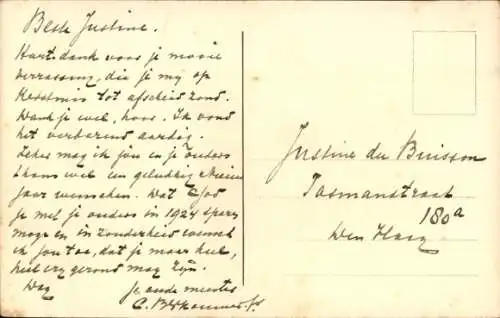 Beste Justine.
Hart. dank voor je mooie
verrassing, die je mij op
Kerstmis tot afscheid zond.
Dank je wel, hoor. Ik vond
het verbazend aardig.
Zeker mag ik jou en je Ouders
thans wel een gelukkig Nieuw
jaar wenschen. Dat God
je met je ouders in 1924 spare
moge en in zonderheid wensch
ik jou toe, dat je maar heel,
heel erg gezond mag zijn.
Dag
Je oude meester
Justine du Buisson
Tasmanstraat
180a
Den Haag